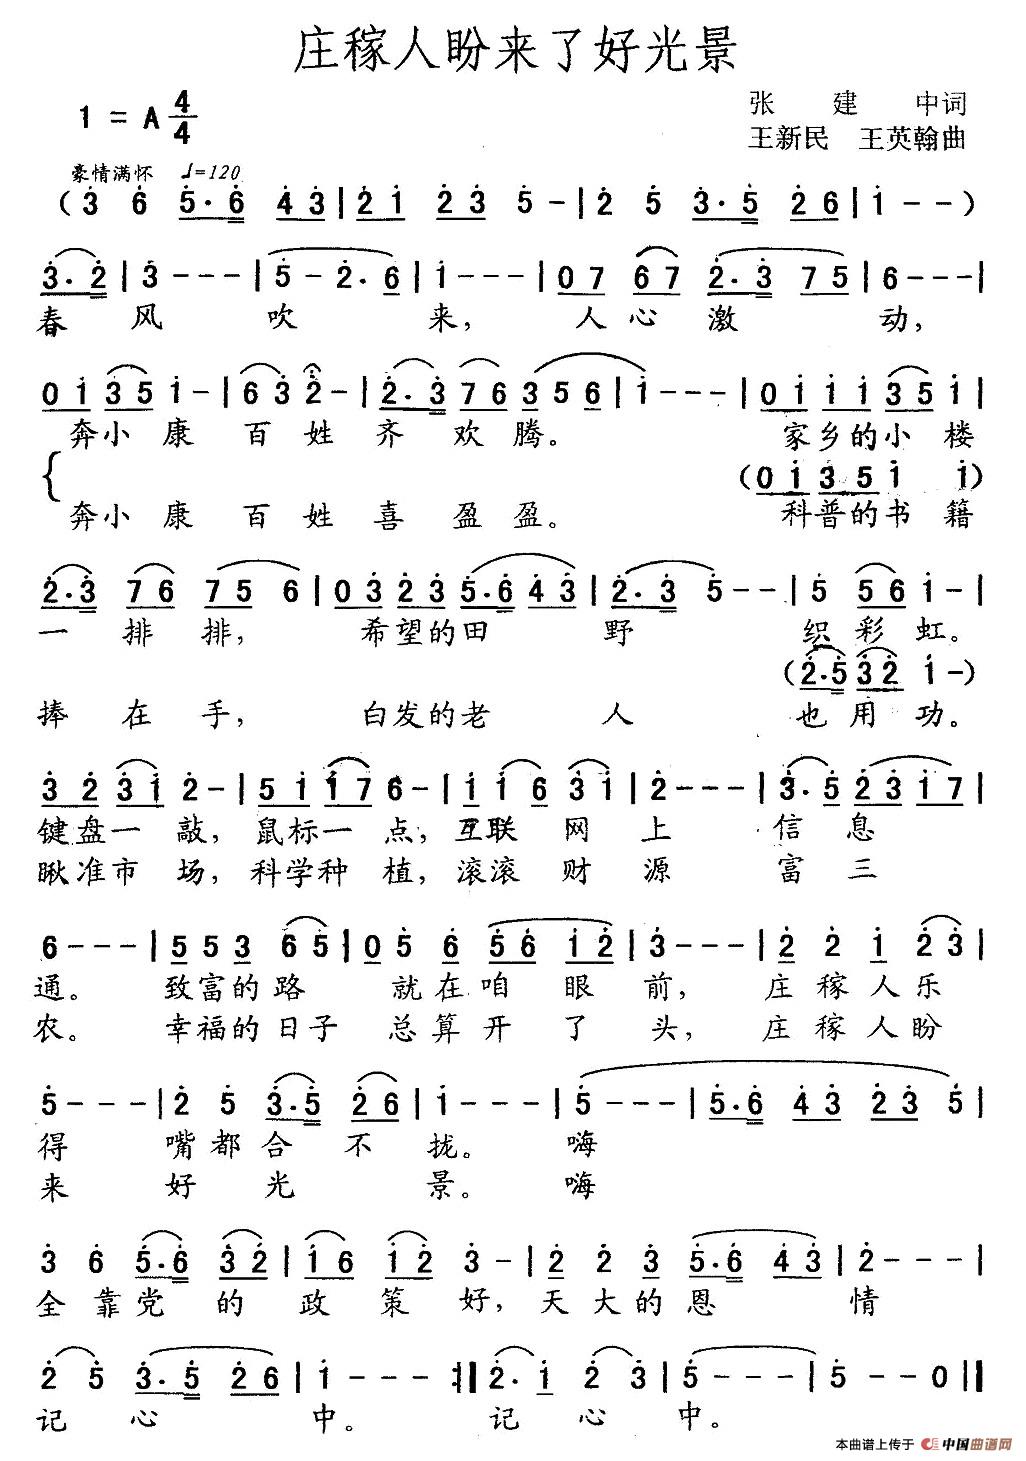 庄稼人盼来了好光景
1 = A 4/4
张 建 中词
王新民 王英翰曲
豪情满怀 ♩=120
( 3 6 5· 6 4 3 | 2 1 2 3 5 - | 2 5 3· 5 2 6 | 1 - - )
3· 2 | 3 - - - | 5 - 2· 6 | 1 - - - | 0 7 6 7 2· 3 7 5 | 6 - - - |
春 风 吹 来, 人 心 激 动,
0 1 3 5 1 - | 6 3 2 - | 2· 3 7 6 3 5 6 | 1 - - - | 0 1 1 1 3 5 1 |
奔小 康 百 姓 齐 欢 腾。 家乡的小 楼
(0 1 3 5 1 1)
奔小 康 百 姓 喜 盈 盈。 科普的书 籍
2· 3 7 6 7 5 6 | 0 3 2 3 5· 6 4 3 | 2· 3 5 - - | 5 5 6 1 - |
一 排 排, 希望的田 野 织 彩 虹。
(2· 5 3 2 1 -)
捧 在 手, 白发的老 人 也 用 功。
3 2 3 1 2 - | 5 1 1 7 6 - | 1 1 6 3 1 | 2 - - - | 3· 5 2 3 1 7 |
键盘一 敲, 鼠标一 点, 互联 网 上 信 息
瞅准市 场, 科学种 植, 滚滚 财 源 富 三
6 - - - | 5 5 3 6 5 | 0 5 6 5 6 1 2 | 3 - - - | 2 2 1 2 3 |
通。 致富的 路 就 在 咱 眼 前, 庄 稼 人 乐
农。 幸福的 日子 总 算 开 了 头, 庄 稼 人 盼
5 - - - | 2 5 3· 5 2 6 | 1 - - - | 5 - - - | 5· 6 4 3 2 3 5 |
得 嘴 都 合 不 拢。 嗨
来 好 光 景。 嗨
3 6 5· 6 3 2 | 1 6 1 2 3 - | 2 2 3 5· 6 4 3 | 2 - - - |
全 靠 党 的 政 策 好, 天 大 的 恩 情
2 5 3· 5 2 6 | 1 - - - :‖ 2· 1 2 3 | 5 - - - | 5 - - 0 ‖
记 心 中。 记 心 中。
本曲谱上传于 中国曲谱网